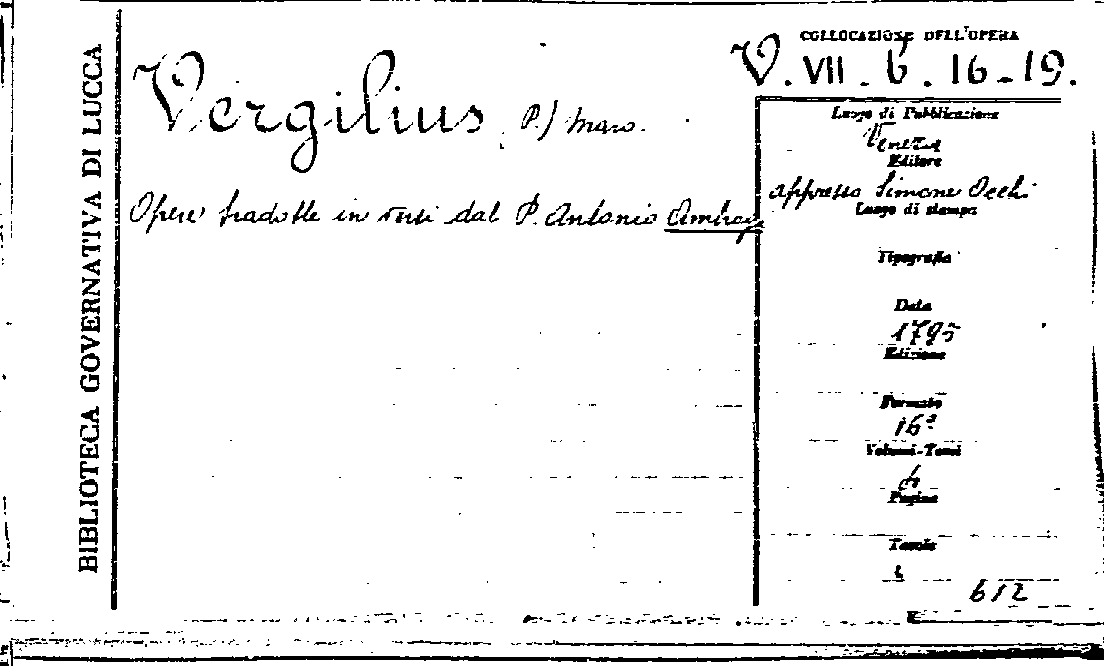 BIBLIOTECA GOVERNATIVA DI LUCCA
COLLOCAZIONE DELL'OPERA
V. VII. 6. 16-19.
Vergilius (P.) Maro.
Opere tradotte in versi dal P. Antonio Ambrogi
Luogo di Pubblicazione
Venezia
Editore
appresso Simone Occhi
Luogo di stampa
Tipografia
Data
1795
Edizione
Formato
16º
Volumi-Tomi
Pagine
Tavole
612